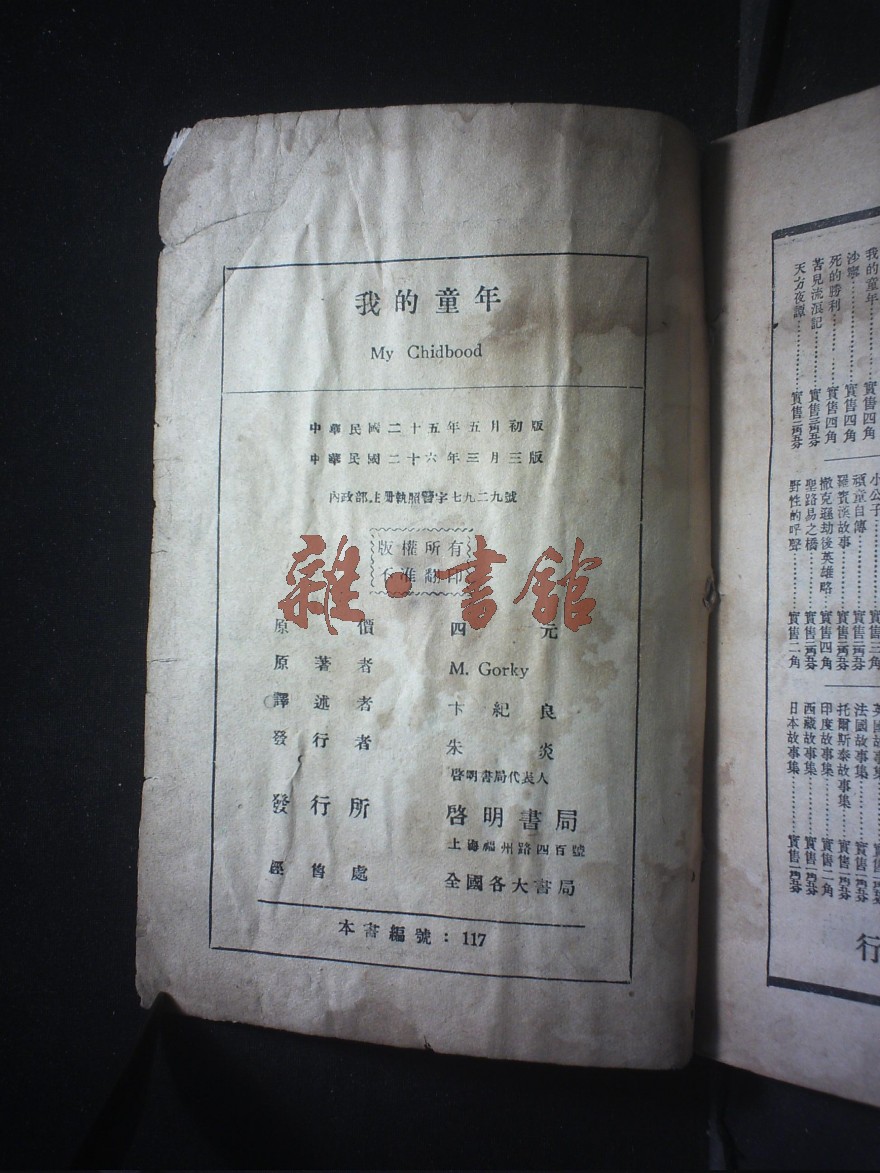 我的童年
My Chidbood
中華民國二十五年五月初版
中華民國二十六年三月三版
內政部註册執照警字七九二九號
版權所有
不准翻印
雜·書館
原價 四元
原著者 M. Gorky
譯述者 卞紀良
發行者 朱炎
啓明書局代表人
發行所 啓明書局
上海福州路四百號
經售處 全國各大書局
本書編號:117
我的童年………實售四角
沙寧………實售四角
死的勝利………實售四角
苦兒流浪記………實售
天方夜譚………實售
小公子………實售三角
頑童自傳………實售
羅賓漢故事………實售
撒克遜劫後英雄略………實售四角
聖路易之橋………實售
野性的呼聲………實售二角
法國故事集………實售
托爾斯泰故事集………實售
印度故事集………實售二角
西藏故事集………實售
日本故事集………實售
行